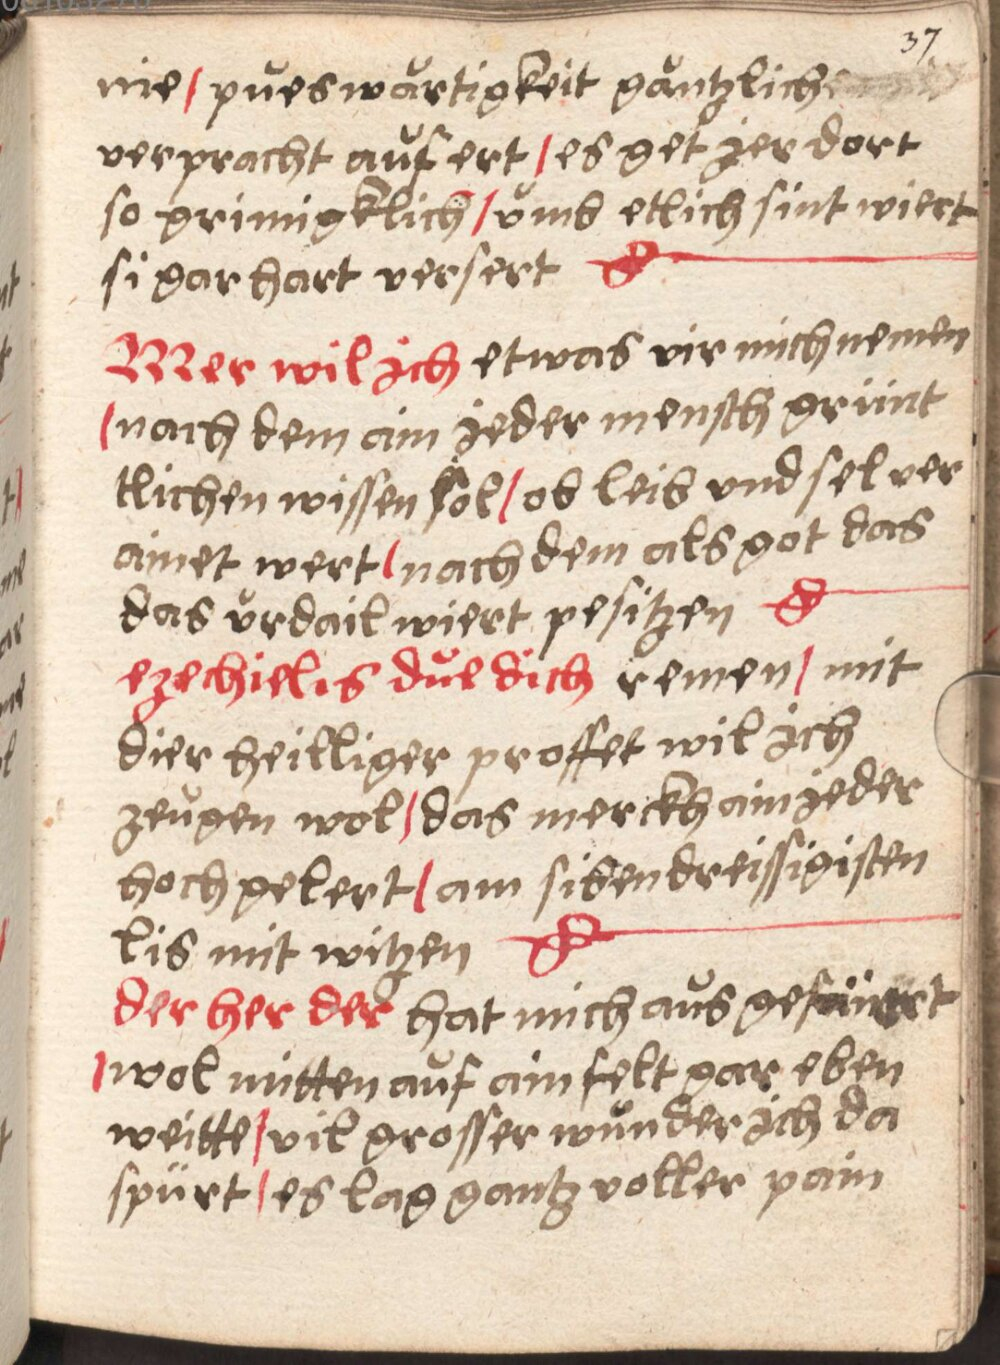 37
nie / puͦeswaͤrtigkeit gaͤntzlich
verpracht auͦf ert / es get jer dort
so grimigklich / uͦmb etlich sint wiert
si gar hart versert
Mer wil jch etwas vir mich nemen
/ nach dem ain jeder mensch grünt
tlichen wissen sol / ob leib vnd sel ver
ainet wert / nach dem als got das
das uͦrdail wiert pesitzen
ezechielis duͦe dich remen / mit
dier heilliger proffet wil jch
zeuͦgen wol / das merckh ain jeder
hoch gelert / am sibendreissigisten
lis mit witzen
der her der hat mich auͦs gefüert
/ wol mitten auͦf ain felt gar eben
weitte / vil grosser wuͦnder jch da
spürt / es lag gantz voller pain